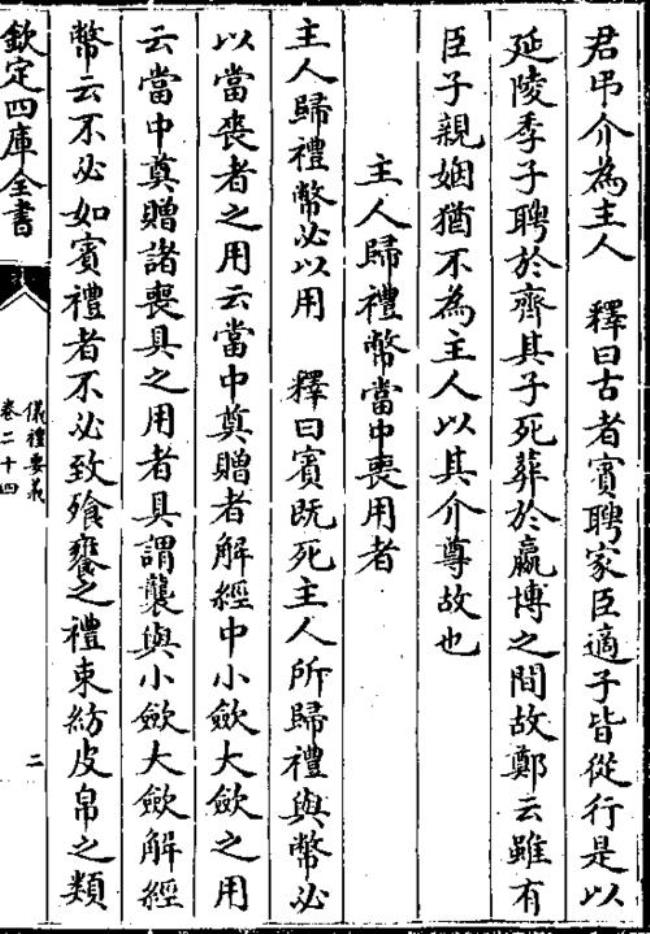 君弔介為主人　釋曰古者賓聘家臣適子皆從行是以
延陵季子聘於齊其子死葬於嬴博之間故鄭云雖有
臣子親姻猶不為主人以其介尊故也
主人歸禮幣當中喪用者
主人歸禮幣必以用　釋曰賓既死主人所歸禮與幣必
以當喪者之用云當中奠贈者解經中小斂大斂之用
云當中奠贈諸喪具之用者具謂襲與小斂大斂解經
幣云不必如賓禮者不必致飱饔之禮束紡皮帛之類
欽定四庫全書
儀禮要義
卷二十四
二